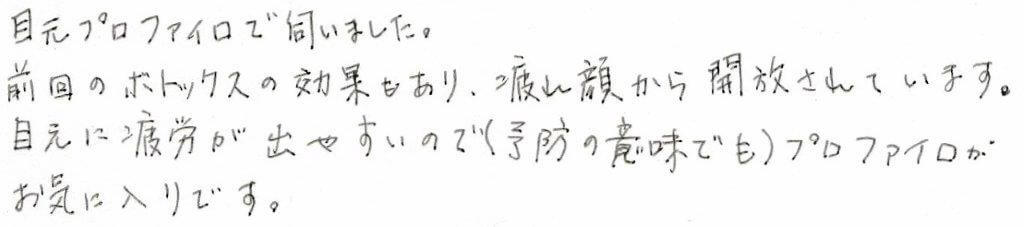 目元プロファイロで伺いました。
前回のボトックスの効果もあり、疲れ顔から開放されています。
目元に疲労が出やすいので(予防の意味でも)プロファイロが
お気に入りです。